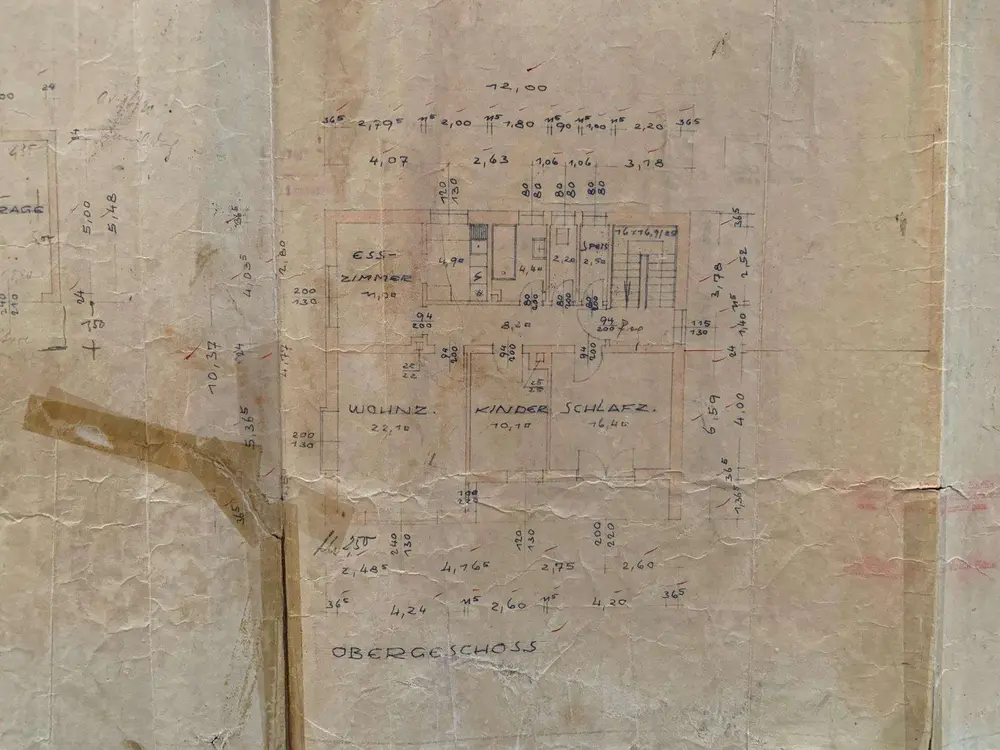 12,00
36⁵ 2,79⁵ 11⁵ 2,00 11⁵ 1,80 11⁵ 90 11⁵ 1,00 11⁵ 2,20 36⁵
4,07 2,63 1,06 1,06 3,78
120
130
80
80
80
80
80
80
24
5,00
5,48
24
240
210
36⁵
4,03⁵
24
10,37
5,36⁵
36⁵
2,80
200
130
4,77
200
130
ESS-
ZIMMER
4,90
4,40
2,20
SPEIS
2,50
16 = 16,9/28
80
200
80
200
80
200
94
200
8,20
94
200
94
200
94
200
94
200
WOHNZ.
22,10
KINDER
10,10
SCHLAFZ.
16,40
115
130
36⁵
2,52
3,78
11⁵
1,40
24
6,59
4,00
36⁵
1,36⁵
240
130
120
130
200
220
2,48⁵ 4,16⁵ 2,75 2,60
36⁵ 4,24 11⁵ 2,60 11⁵ 4,20 36⁵
OBERGESCHOSS